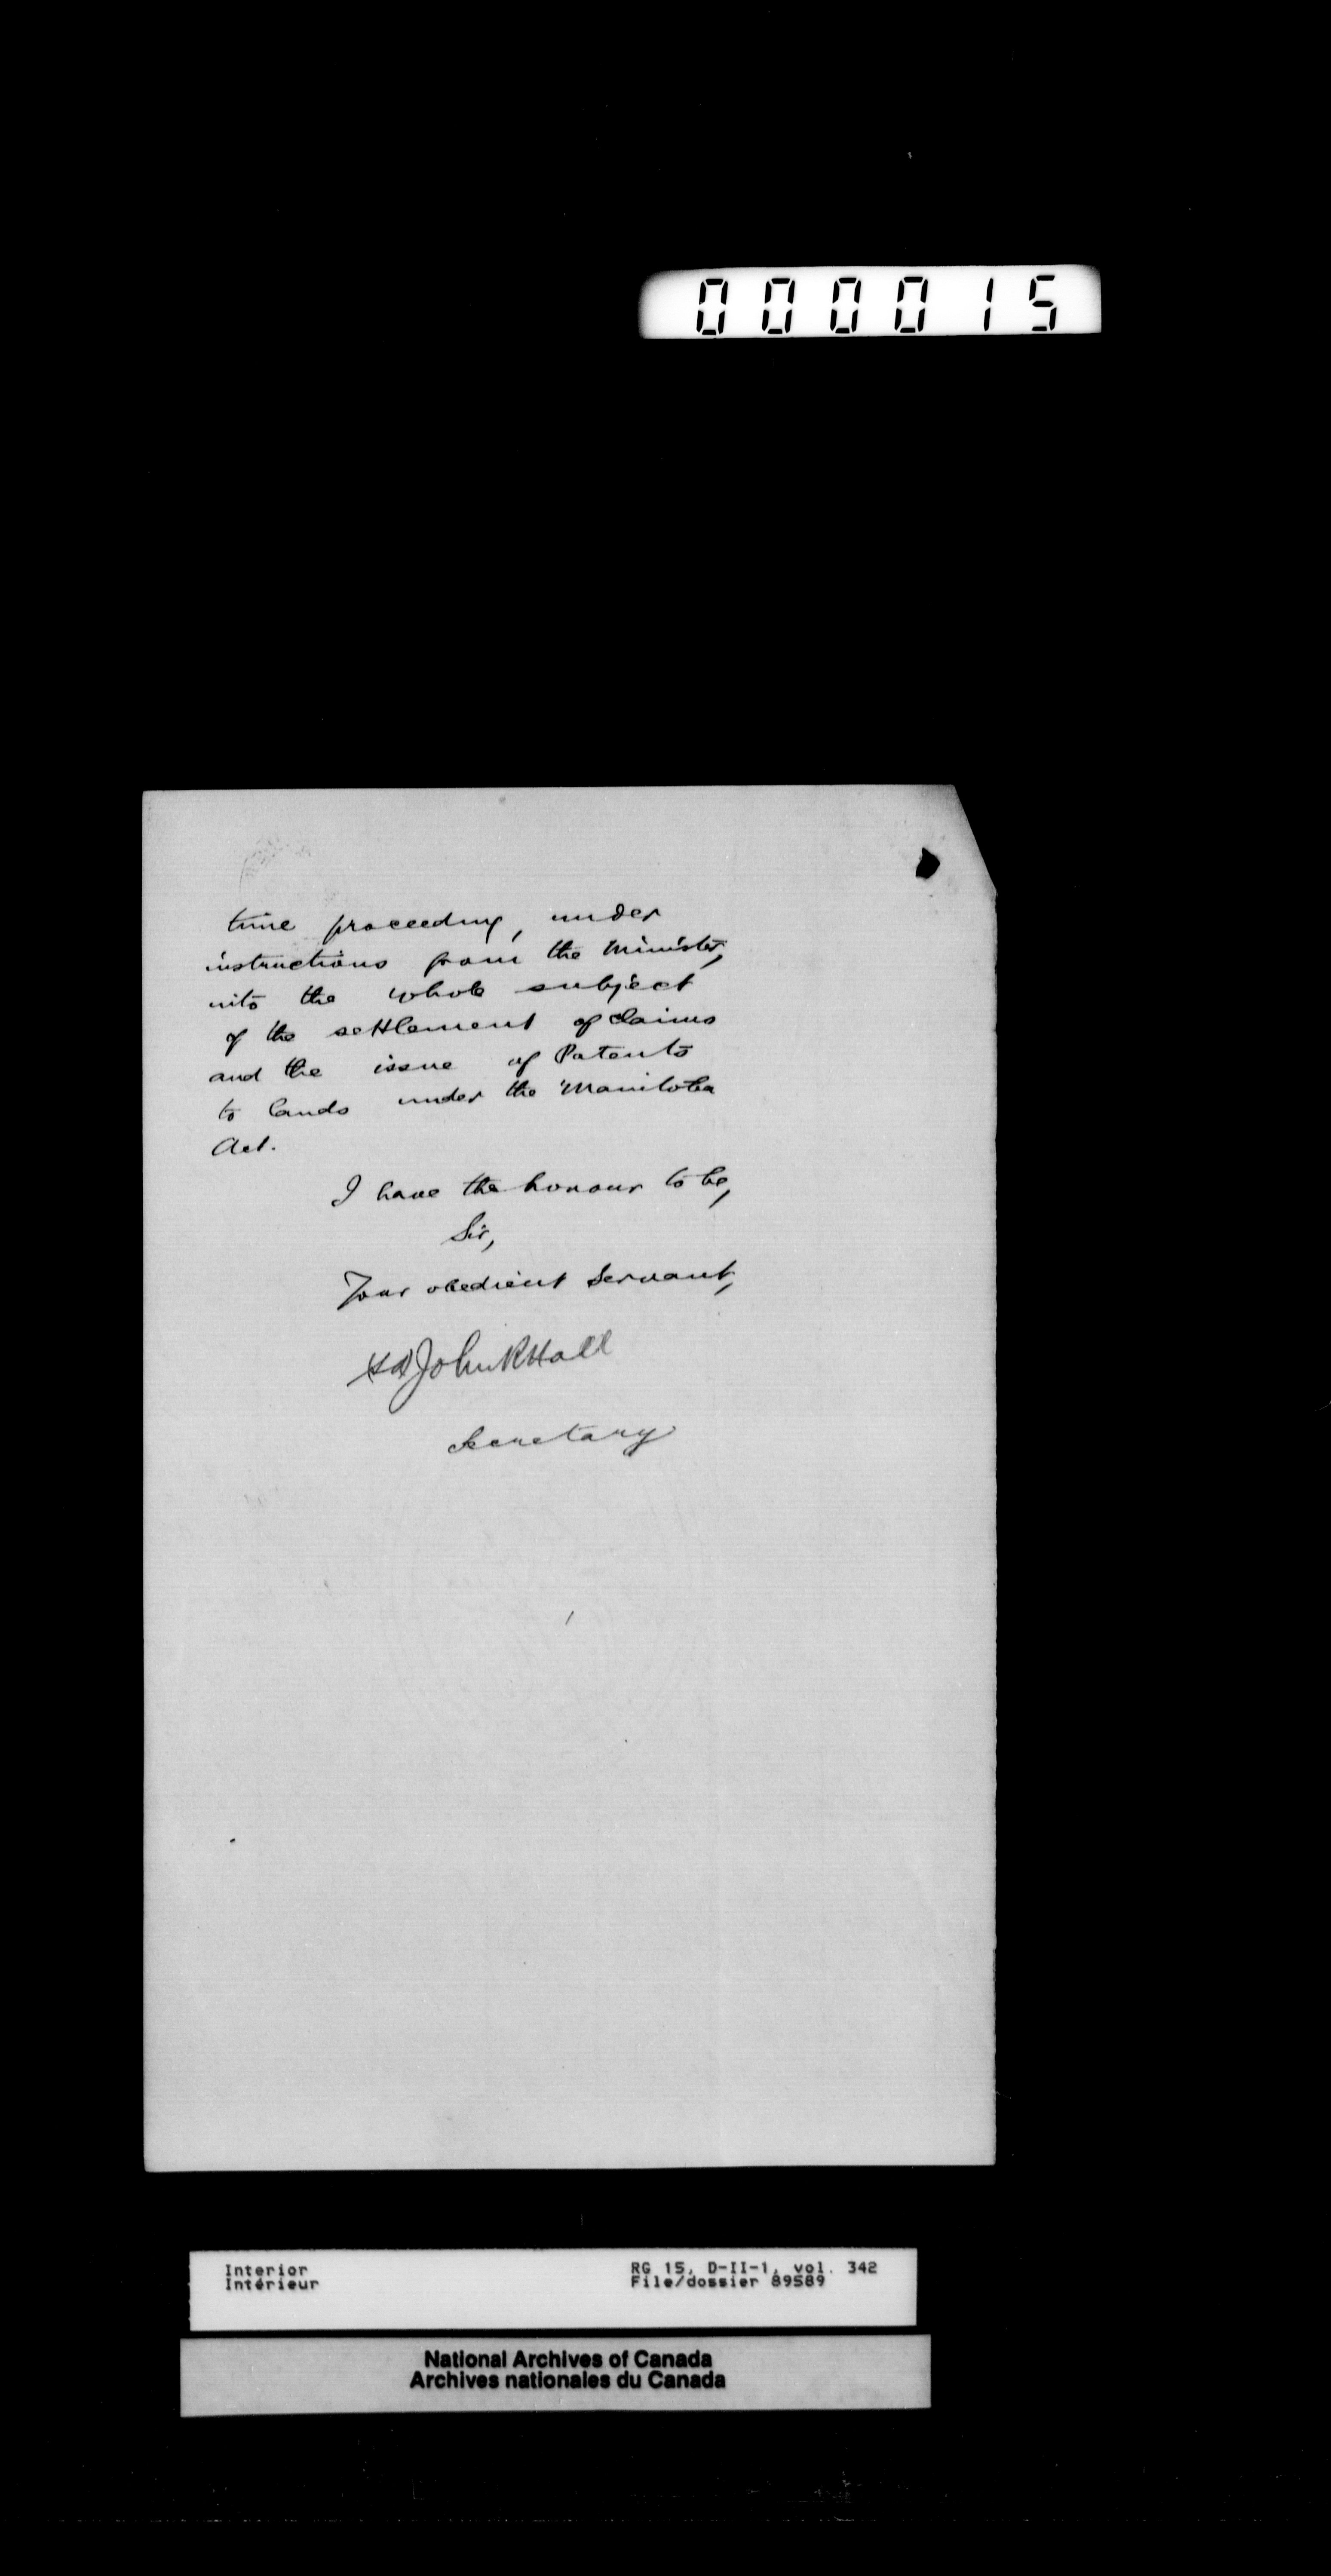 000015
time proceeding, under
instructions from the Minister,
into the whole subject
of the settlement of claims
and the issue of Patents
to lands under the Manitoba
Act.
I have the honour to be,
Sir,
Your obedient Servant,
(Sd) John R Hall
Secretary
Interior
Intérieur
RG 15, D-II-1, vol. 342
File/dossier 89589
National Archives of Canada
Archives nationales du Canada